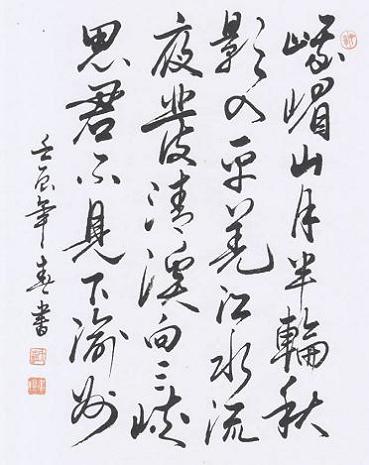 峨嵋山月半輪秋
影入平羌江水流
夜發清溪向三峽
思君不見下渝州
壬辰年春書